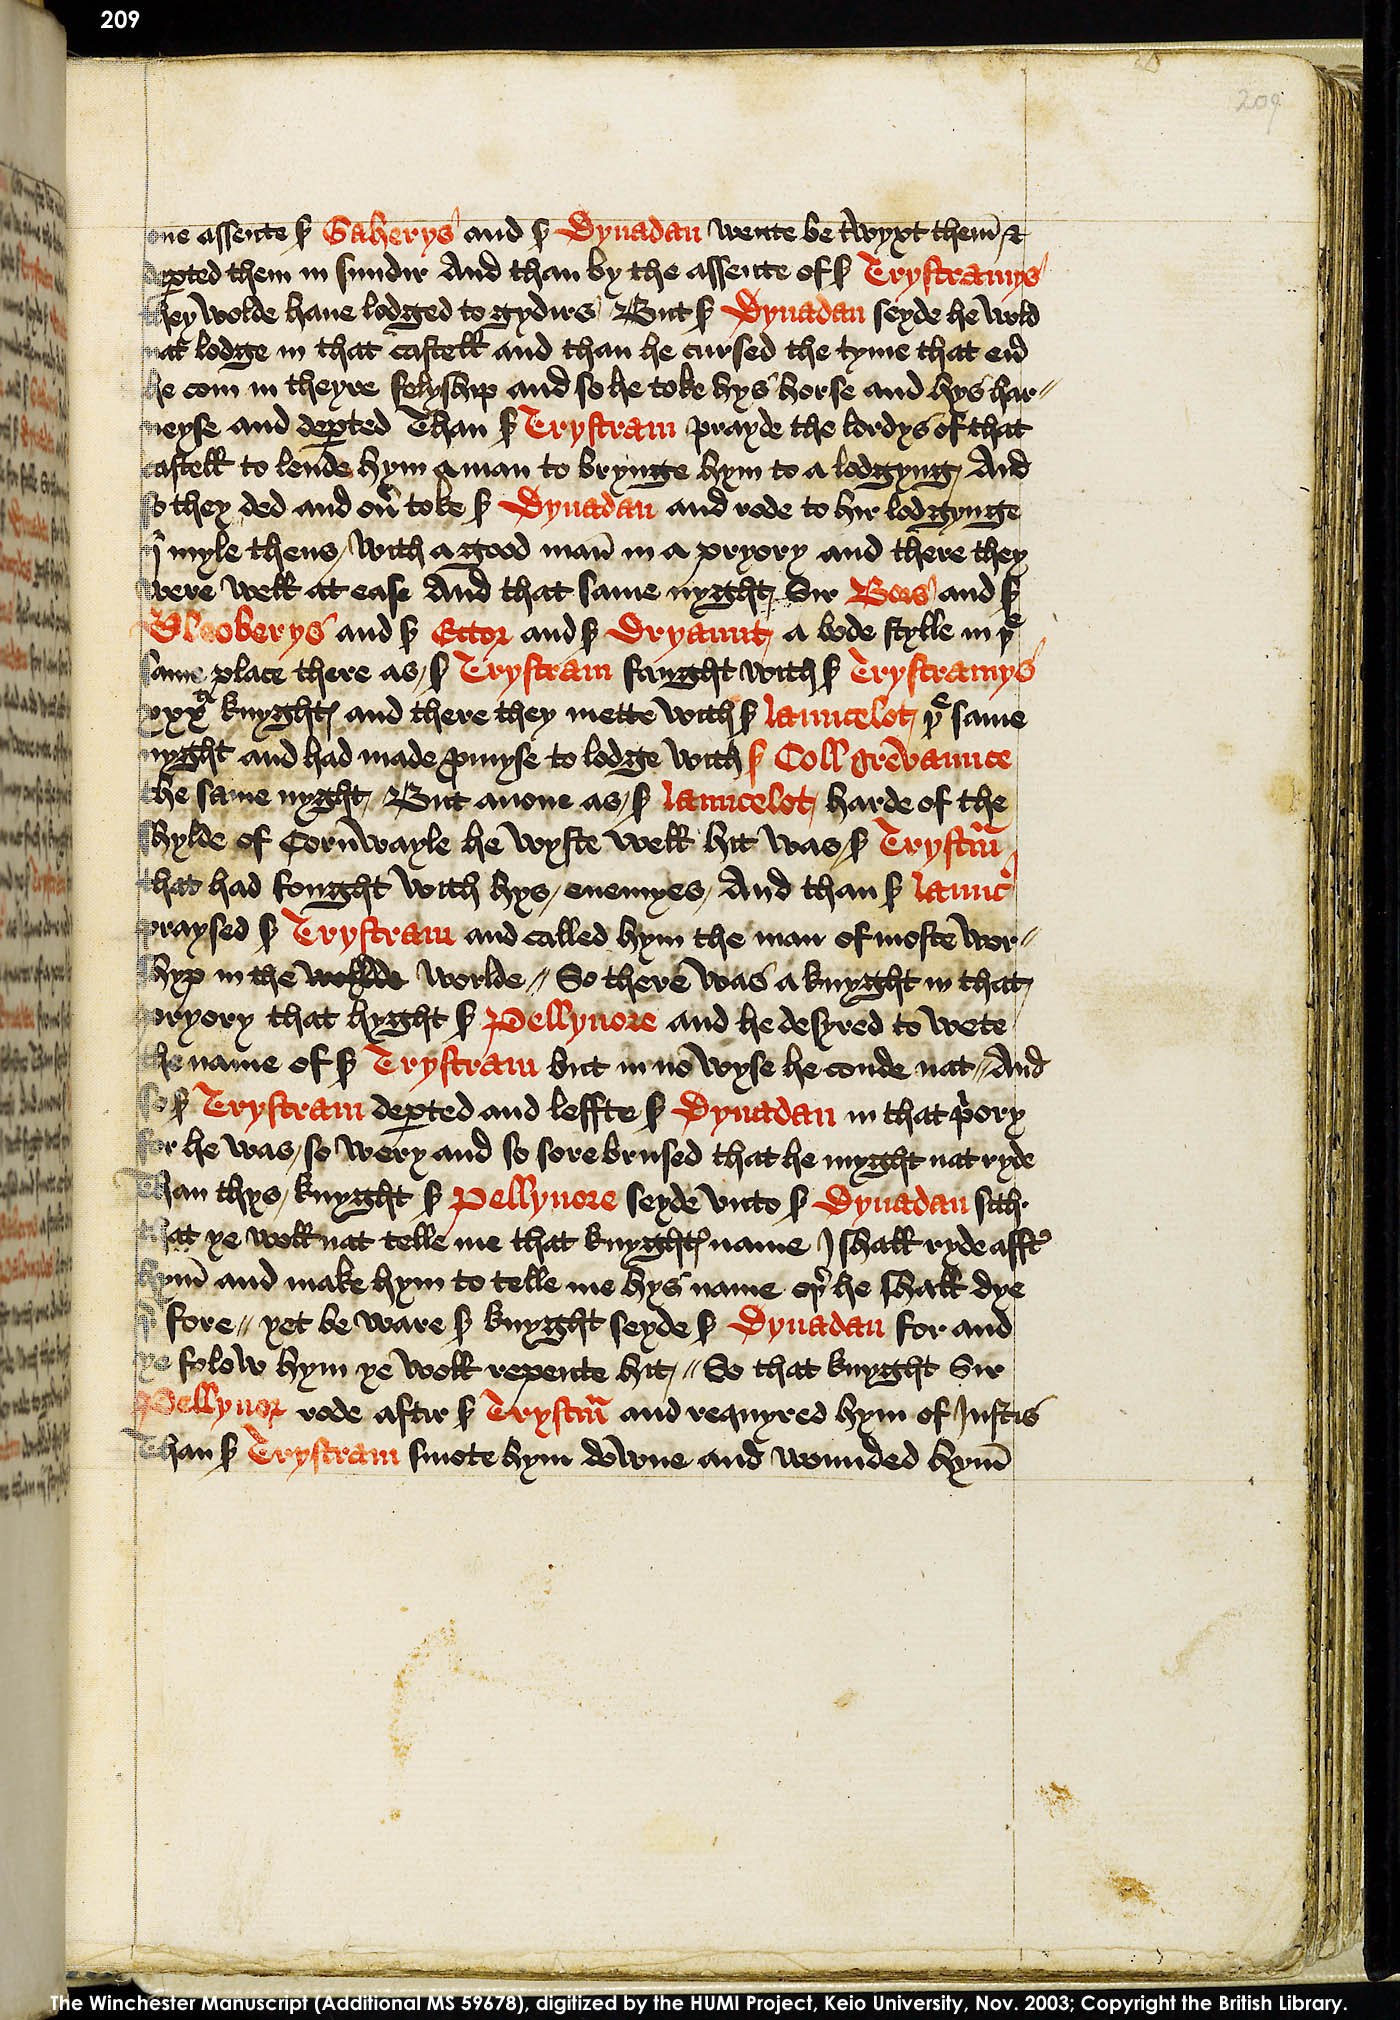 209
209
one assente ẜ Gaherys and ẜ Dynadan wente be twyxt them̄ ⁊
dep̱ted them in sundir And than by the assente of ẜ Trystramys
they wolde haue lodged to gydirs But ẜ Dynadan seyde he wold
nat lodge in that castell and than he cursed the tyme that eũ
he com in theyre felyship and so he toke hys horse and hys har〃
neyse and dep̱ted Than ẜ Trystram prayde the lordys of that
castell to lende hym a man to brynge hym to a lodgyng And
so they ded and oũ toke ẜ Dynadan and rode to hir lodgynge
ij myle thens with a good man̄ in a pryory and there they
were well at ease And that same nyght Sir Bors and ẜ
Bleoberys and ẜ Ector and ẜ Dryaunt a bode stylle in þe
same place there as ẜ Trystram faught with ẜ Trystramys
xxxti knyghtꝭ and there they mette with ẜ launcelot þe same
nyght and had made ꝓmyse to lodge with ẜ Collgrevaunce
the same nyght But anone as ẜ launcelot harde of the
shylde of Corn̄wayle he wyste well hit was ẜ Trystrm̄
that had fought with hys enemyes And than ẜ launc̃
praysed ẜ Trystram and called hym the man of moste wor〃
shyp in the worlde worlde〃 So there was a knyght in that
pryory that hyght ẜ Pellynore and he desyred to wete
the name of ẜ Trystram but in no wyse he coude nat〃 And
so ẜ Trystram dep̱ted and leffte ẜ Dynadan in that p̃ory
for he was so wery and so sore brused that he myght nat ryde
Than thys knyght ẜ Pellynore seyde vnto ẜ Dynadan sith
that ye woll nat telle me that knyghtꝭ name I shall ryde afft̃
hym̄ and make hym to telle me hys name oþ̃ he shall dye
þ̃ fore〃 yet be ware ẜ knyght seyde ẜ Dynadan for and
ye folow hym ye woll repente hit〃 So that knyght Sir
Pellynor rode aftir ẜ Trystrm̄ and requyred hym of Justis
Than ẜ Trystram smote hym downe and wounded hym̄
The Winchester Manuscript (Additional MS 59678), digitized by the HUMI Project, Keio University, Nov. 2003; Copyright the British Library.